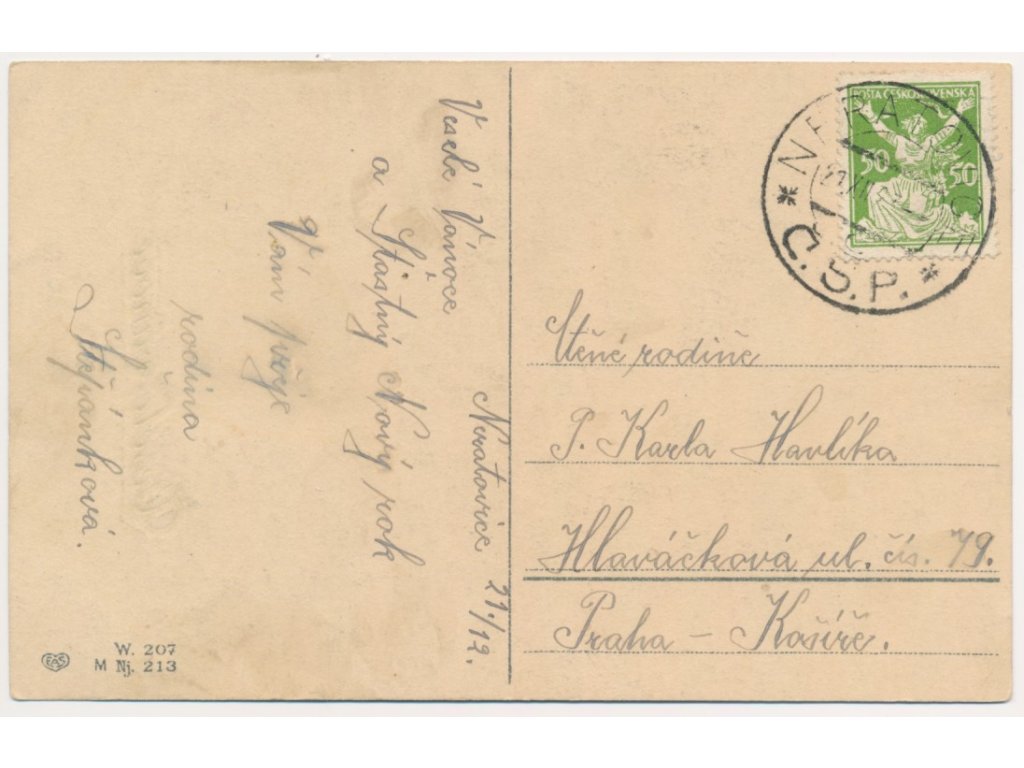 Neratovice 21./12.
Veselé Vánoce
a Šťastný Nový rok
Vám přeje
rodina
Štěpánková.
POŠTA ČESKOSLOVENSKÁ
50 50
Č.S.P.
Ctěné rodině
P. Karla Havlíka
Hlaváčková ul. čís. 79.
Praha – Košíře.
W. 207
M Nj. 213
EAS